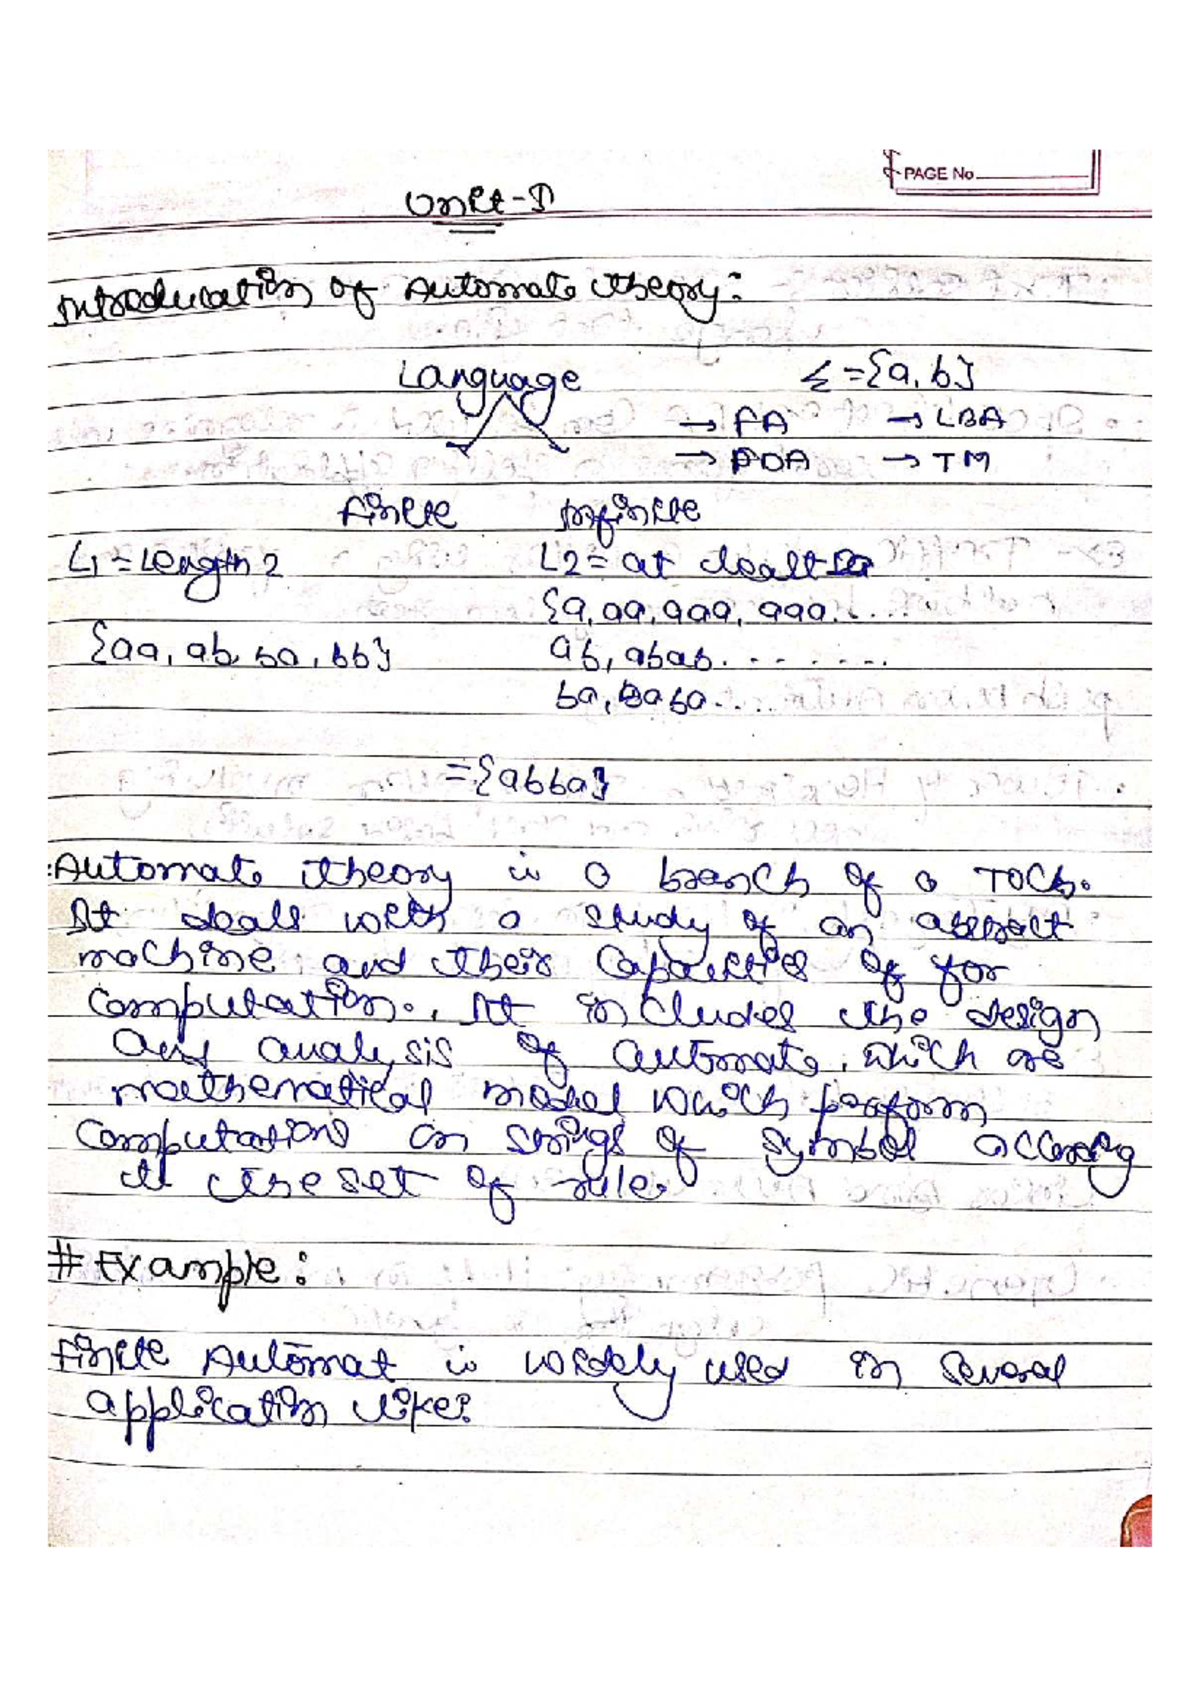 PAGE No.
Unit-I
Introducation of Automate theory:
Language Σ={a,b}
→ FA → LBA
→ PDA → TM
finite Infinite
L1 = Length 2 L2 = at
{a, aa, aaa, aaa.....
{aa, ab, ba, bb} ab, abab.......
ba, baba....
={abba}
Automate theory is a branch of a TOC
It deals with a study of an abstract
machine and their Capacities of for
Computation. It includes the design
and analysis of automate, which are
mathematical model which perform
Computations on strings of symbol according
the set of rule.
# Example:
finite Automat is widely used in several
application like: